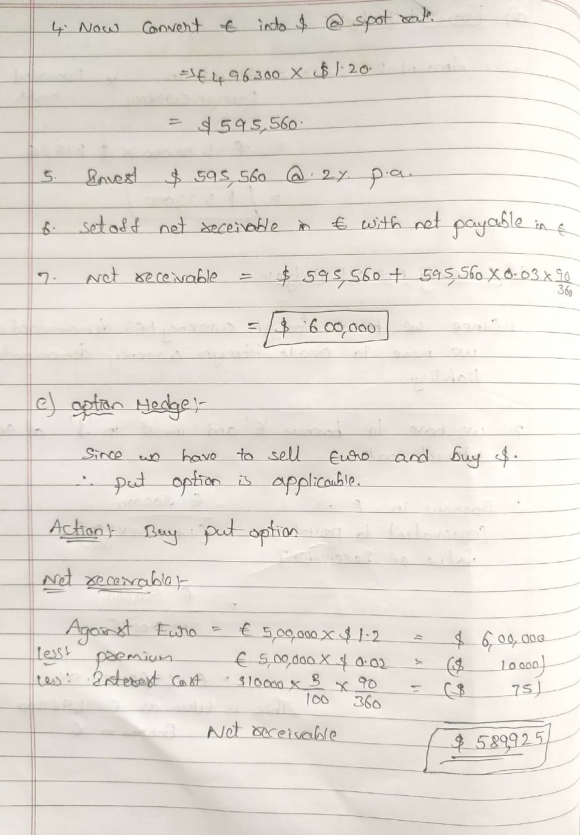 4. Now Convert € into $ @ spot rate.
=> € 496300 X $ 1.20.
= $ 595,560.
5. Invest $ 595,560 @ 2% p.a.
6. set off net receivable in € with net payable in €
7. Net receivable = $ 595,560 + 595,560 X 0.03 X 90/360
= $ 600,000
c) option Hedge:-
Since we have to sell Euro and buy $.
∴ put option is applicable.
Action:- Buy put option
Net receivable:-
Against Euro = € 5,00,000 X $ 1.2 = $ 6,00,000
less: premium € 5,00,000 X $ 0.02 = ($ 10000)
less: Interest Cost $10000 X 3/100 X 90/360 = ($ 75)
Net receivable $ 589,925